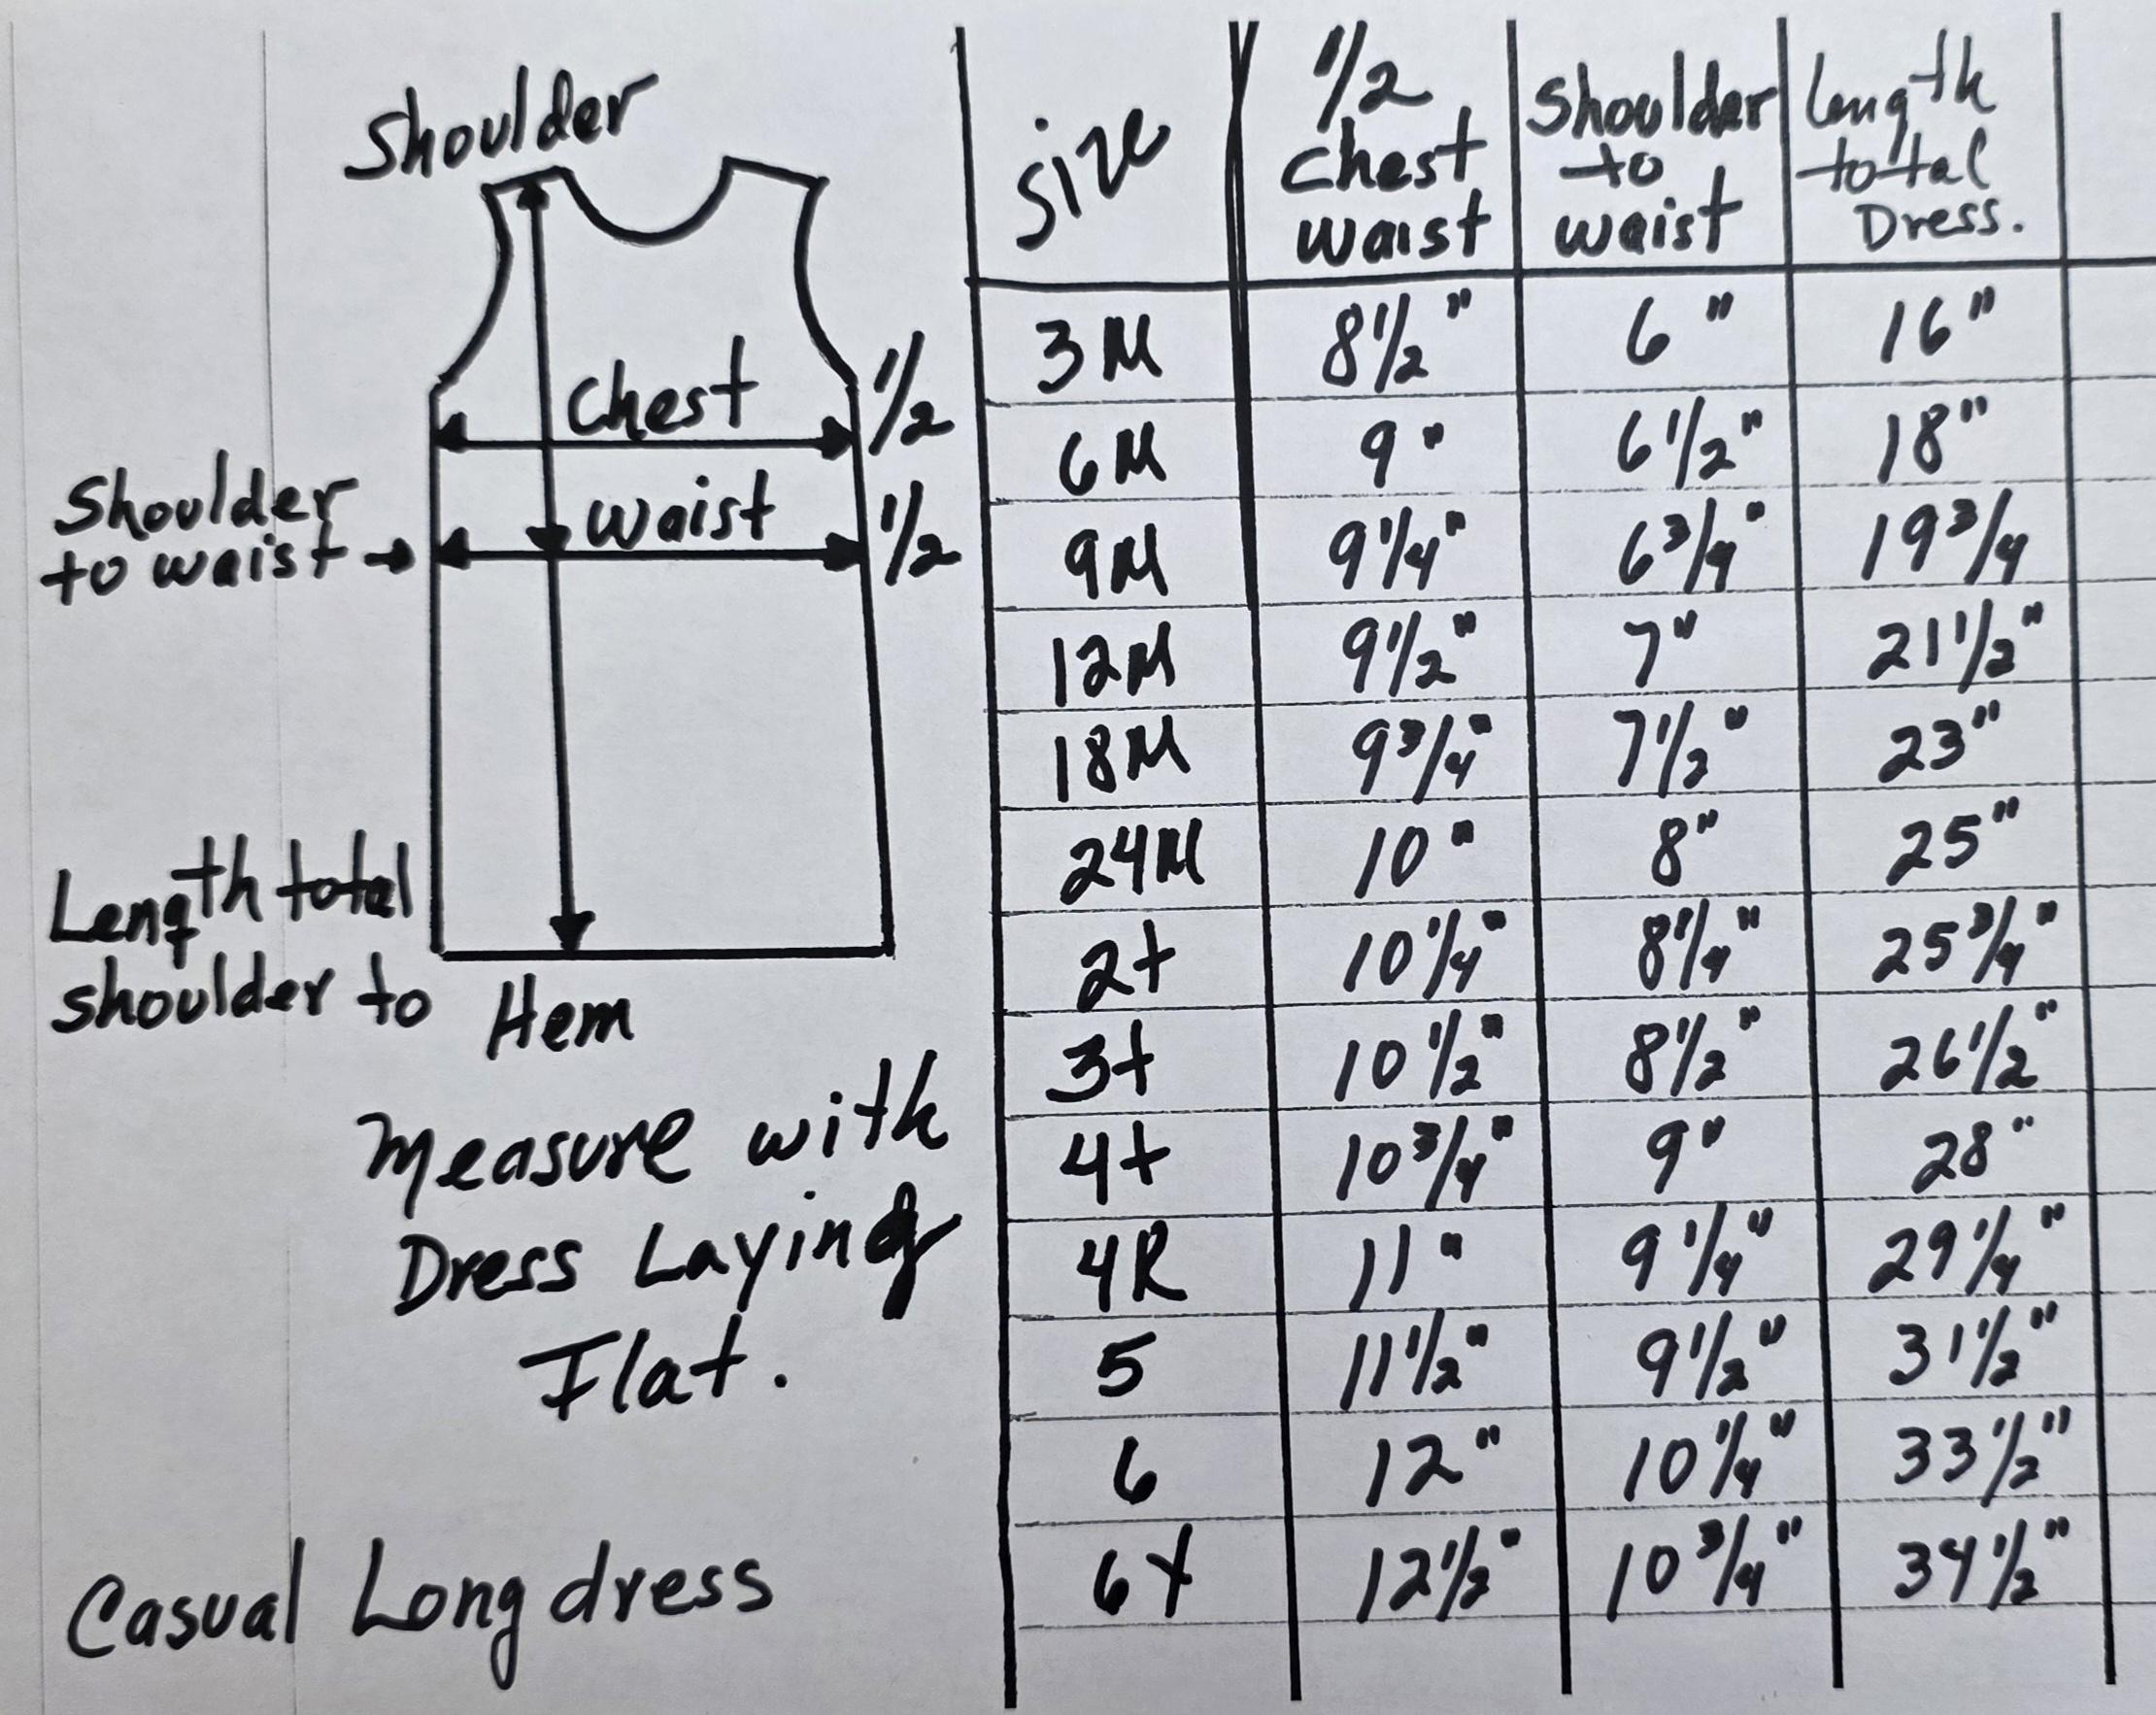 Shoulder
Chest 1/2
Shoulder
to waist → waist 1/2
Length total
shoulder to Hem
Measure with
Dress Laying
Flat.
Casual Long dress
Size 1/2 Chest waist Shoulder to waist Length total Dress.
3M 8 1/2" 6" 16"
6M 9" 6 1/2" 18"
9M 9 1/4" 6 3/4" 19 3/4
12M 9 1/2" 7" 21 1/2"
18M 9 3/4" 7 1/2" 23"
24M 10" 8" 25"
2t 10 1/4" 8 1/4" 25 3/4"
3t 10 1/2" 8 1/2" 26 1/2"
4t 10 3/4" 9" 28"
4R 11" 9 1/4" 29 1/4"
5 11 1/2" 9 1/2" 31 1/2"
6 12" 10 1/4" 33 1/2"
6X 12 1/2" 10 3/4" 34 1/2"